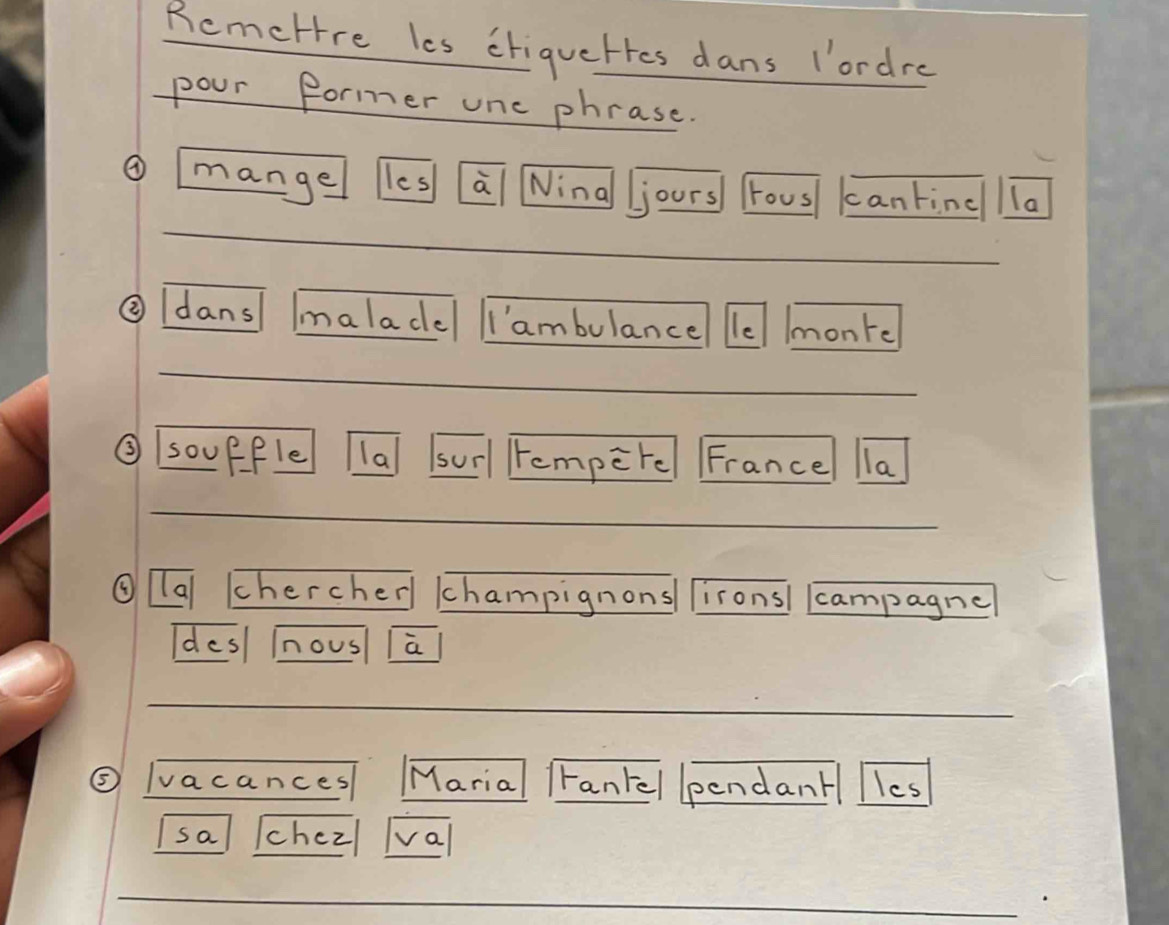 Remettre les étiquettes dans l'ordre
pour former une phrase.
① mange les à Nina jours tous cantine la
② dans malade l'ambulance le monte
③ souffle la sur tempête France la
④ la chercher champignons irons campagne
des nous à
⑤ vacances Maria tante pendant les
sa chez va
.